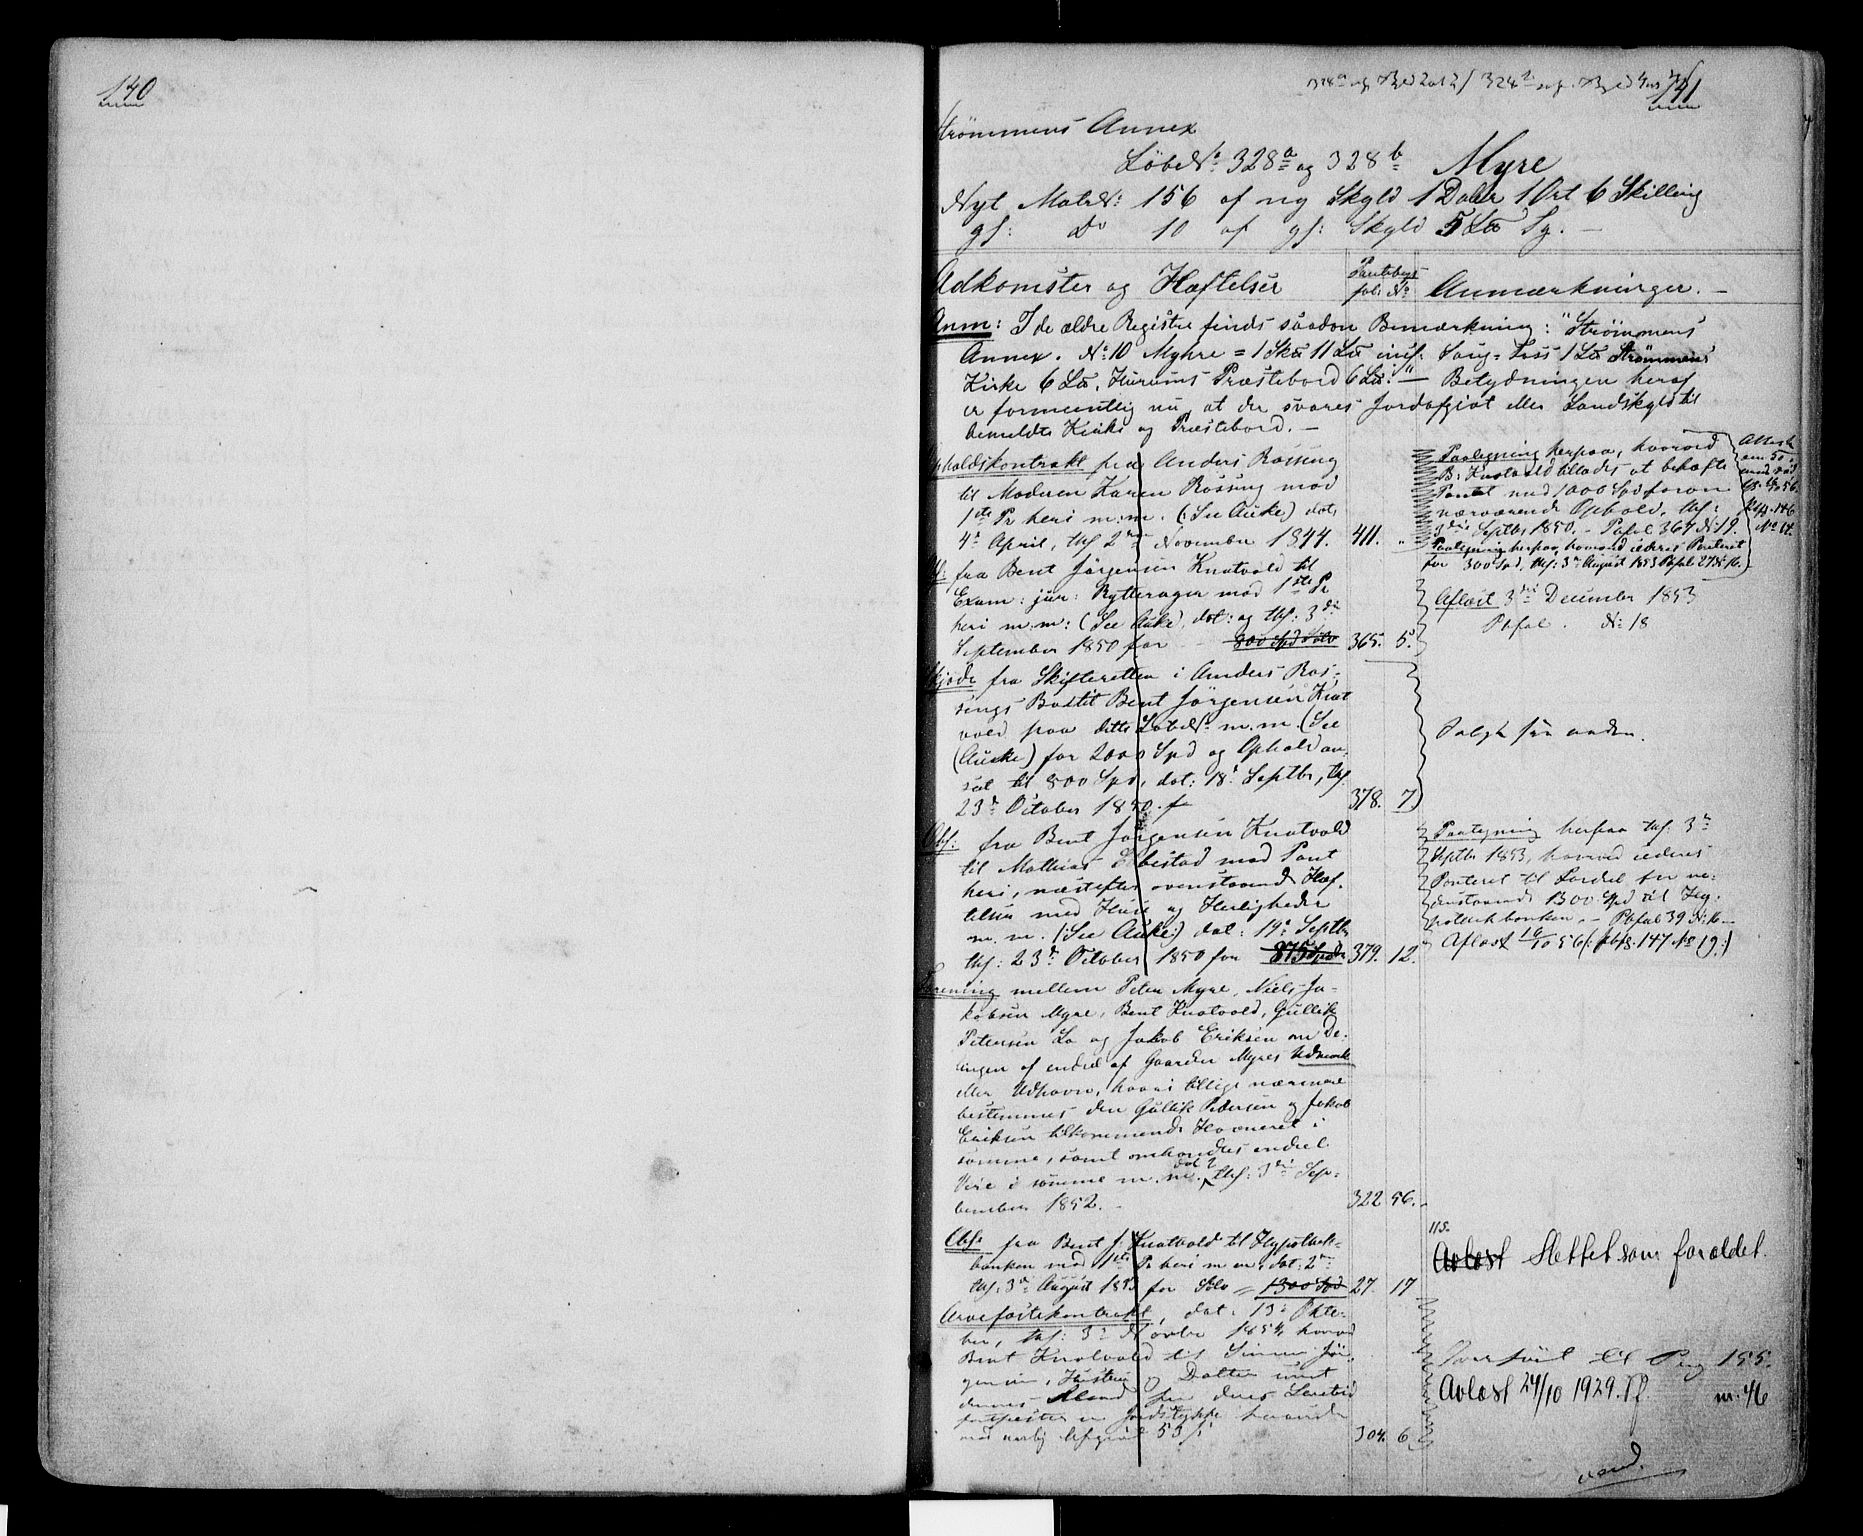 140
141
Strømmens Annex
Løbe No. 328 a og 328 b Myre
Nyt Matr No: 156 af ny Skyld 1 Daler 1 Ort 6 Skilling
gl: Do 10 af gl: Skyld 5 Lb Sg. —
Adkomster og Hæftelser
Pantebogs
fol: No
Anmærkninger. —
Anm: I de ældre Registre findes saadan Bemærkning: "Strømmens
Annex. No: 10 Myhre = 1 Skb 11 Lb incl: Saug-Tiis 1 Lb Strømmens
Kirke 6 Lb. Hurums Præstebord 6 Lb:" — Betydningen heraf
er formentlig nu at der svares Jordafgivt eller Landskyld til
bemeldte Kirke og Præstebord. —
Opholdskontrakt fra Anders Røssing
til Moderen Karen Røssing mod
1ste Pr heri m.m. (: See Auke) dat:
4de April, thf 2den November 1844. 411. "
Paategning herpaa, hvorved
B. Knatvold tillades at behæfte
Pantet med 1000 Spd foran
nærværende Ophold, thf:
3die Septbr 1850. – Pbfol 364 No: 19.
Paategning herpaa, hvorved viderer Panteret
for 300 Spd, thf: 3de August 1853 Pbfol 27 No: 16.
fra Bent Jørgensen Knatvold til
Exam: jur: Rytterager mod 1ste Pr
heri m.m: (See Auke) dat: og thf: 3die
September 1850 for — 800 Spd Sølv 365. 5.
Aflæst 3die December 1853
Pbfol . No: 18
Skjøde fra Skifteretten i Anders Røs-
sings Bo til Bent Jørgensen Knat
vold paa dette Løbe No m.m. (See
(Auke) for 2000 Spd og Ophold an-
sat til 800 Spd, dat: 18de Septbr, thf.
23de October 1850. 378. 7
Solgt før anden.
Obl: fra Bent Jørgensen Knatvold
til Mathias Ebbestad mod Pant
heri, næstefter ovenstaaende Hæf-
telser med Huse og Herligheder
m.m. (: See Auke:) dat: 14de Septbr
thf: 23de October 1850 for 875 Spdr 379. 12.
Paategning herpaa thf: 3de
Septbr 1853, hvorved viderer
Panteret til Fordel for ne-
denstaaende 1300 Spd til Hy-
pothekbanken. – Pbfol 39 No: 16 —
Aflæst 16/10 56 (: Pbfs. 147 No 19:)
Forening mellem Peter Myre, Niels Ja-
kobsen Myre, Bent Knatvold, Gullik
Petersen Lo og Jakob Eriksen om De-
lingen af endel af Gaarden Myres Udmark
eller Udhavn, hvori tillige nærmere
bestemmes den Gullik Pedersen og Jakob
Eriksen tilkommende Havneret i
samme, samt omhandles endel
Veie i samme m.m. dat ? thf: 3die Sep-
tember 1852. — 322 56.
Obl: fra Bent J. Knatvold til Hypothek-
banken mod 1ste Pr heri m.m., dat: 2den
thf: 3de August 1853 for Sølv = 1300 Spd 27. 17
115.
Avlæst Slettet som foraldet.
Arvefæstekontrakt, dat: 13de Okto-
ber, thf: 3de Novbr 1854, hvorved
Bent Knatvold til Simen Jør-
gensen, Hustru og Datter samt
dennes Mand for deres Levetid
fortfæster en Jordstykke herunder
mod aarlig Afgivt 5 304. 6
Overført til Pag 155.
Avlæst 24/10 1929. m. 46
vend.